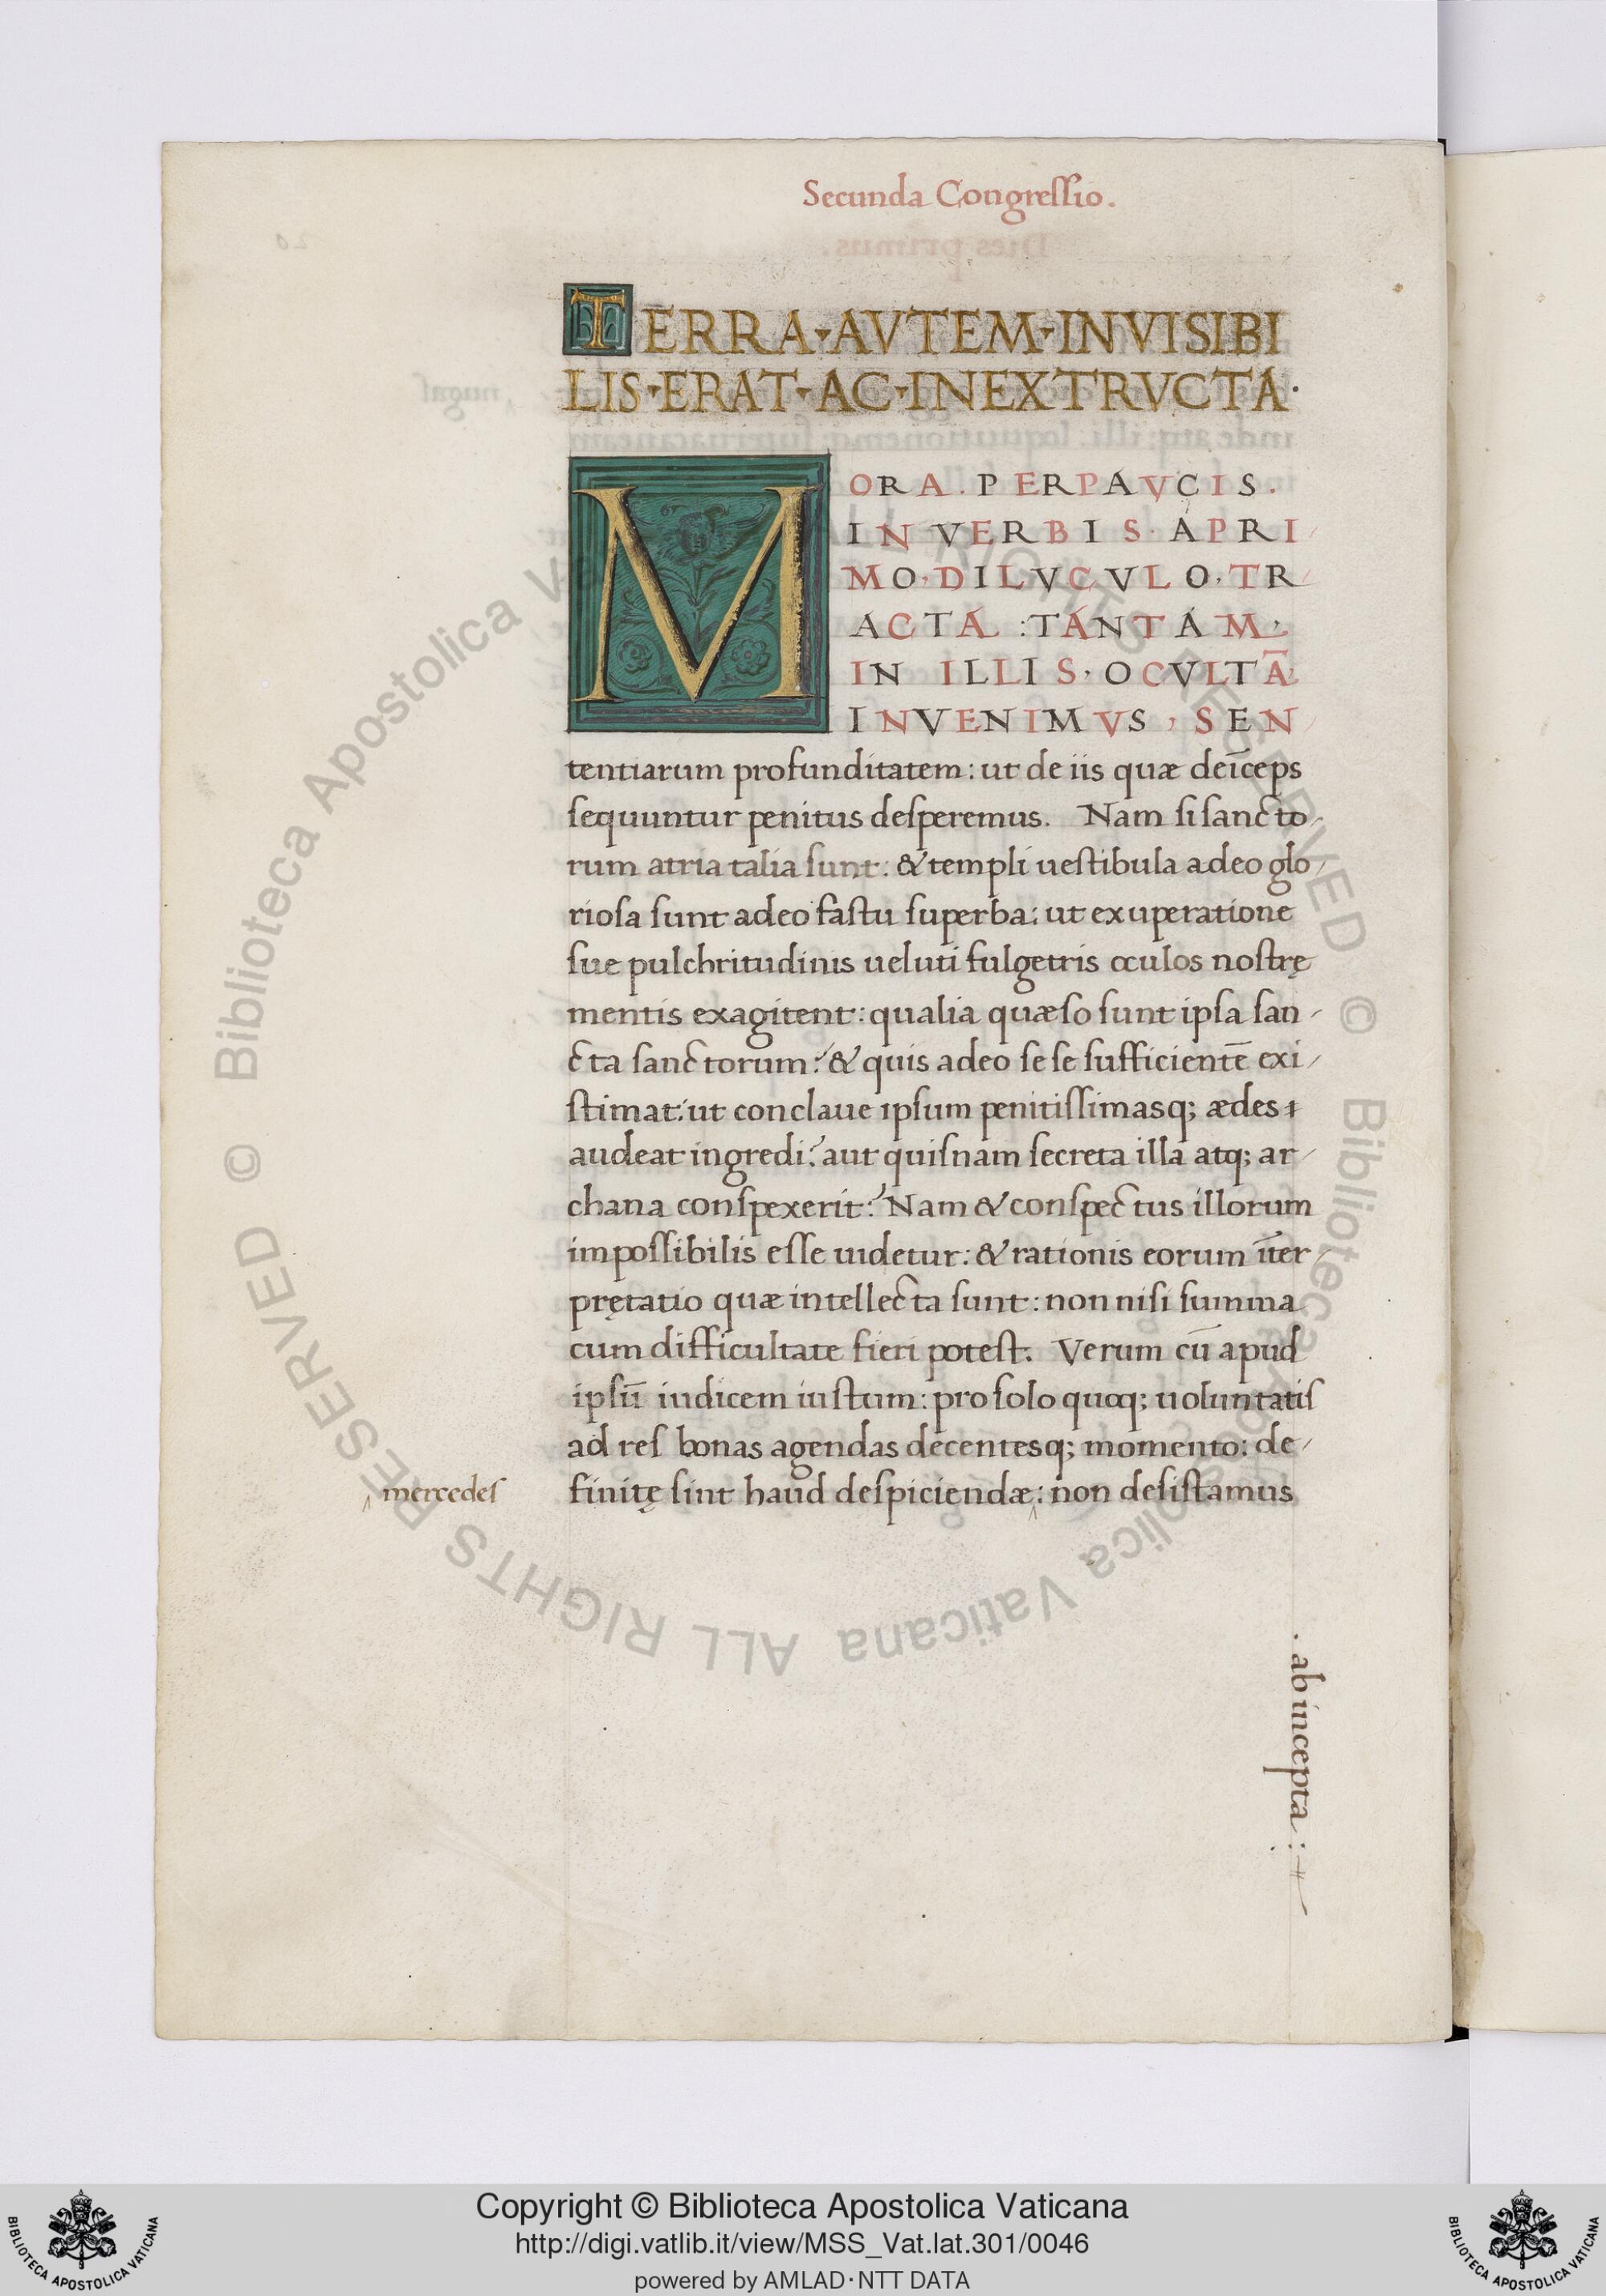 Secunda Congressio.
TERRA·AVTEM·INVISIBI
LIS·ERAT·AC·INEXTRVCTA·
MORA. PERPAVCIS.
IN VERBIS. APRI
MO. DILVCVLO. TR
ACTA: TANTAM,
IN ILLIS, OCVLTĀ
INVENIMVS, SEN
tentiarum profunditatem: ut de iis quæ deīceps
sequuntur penitus desperemus. Nam si sancto-
rum atria talia sunt: & templi uestibula adeo glo-
riosa sunt adeo fastu superba: ut exuperatione
sue pulchritudinis ueluti fulgetris oculos nostrę
mentis exagitent: qualia quæso sunt ipsa san-
cta sanctorum? & quis adeo se se sufficientē exi-
stimat: ut conclaue ipsum penitissimasq; ædes
audeat ingredi? aut quisnam secreta illa atq; ar-
chana conspexerit? Nam & conspectus illorum
impossibilis esse uidetur: & rationis eorum īter-
prętatio quæ intellecta sunt: non nisi summa
cum difficultate fieri potest. Verum cū apud
ipsū iudicem iustum: pro solo quoq; uoluntatis
ad res bonas agendas decentesq; momento: de-
finitę sint haud despiciendæ: non desistamus
mercedes
. ab incepta :
Copyright © Biblioteca Apostolica Vaticana
http://digi.vatlib.it/view/MSS_Vat.lat.301/0046
powered by AMLAD·NTT DATA
BIBLIOTECA APOSTOLICA VATICANA
BIBLIOTECA APOSTOLICA VATICANA
© Biblioteca Apostolica Vaticana ALL RIGHTS RESERVED
© Biblioteca Apostolica Vaticana ALL RIGHTS RESERVED